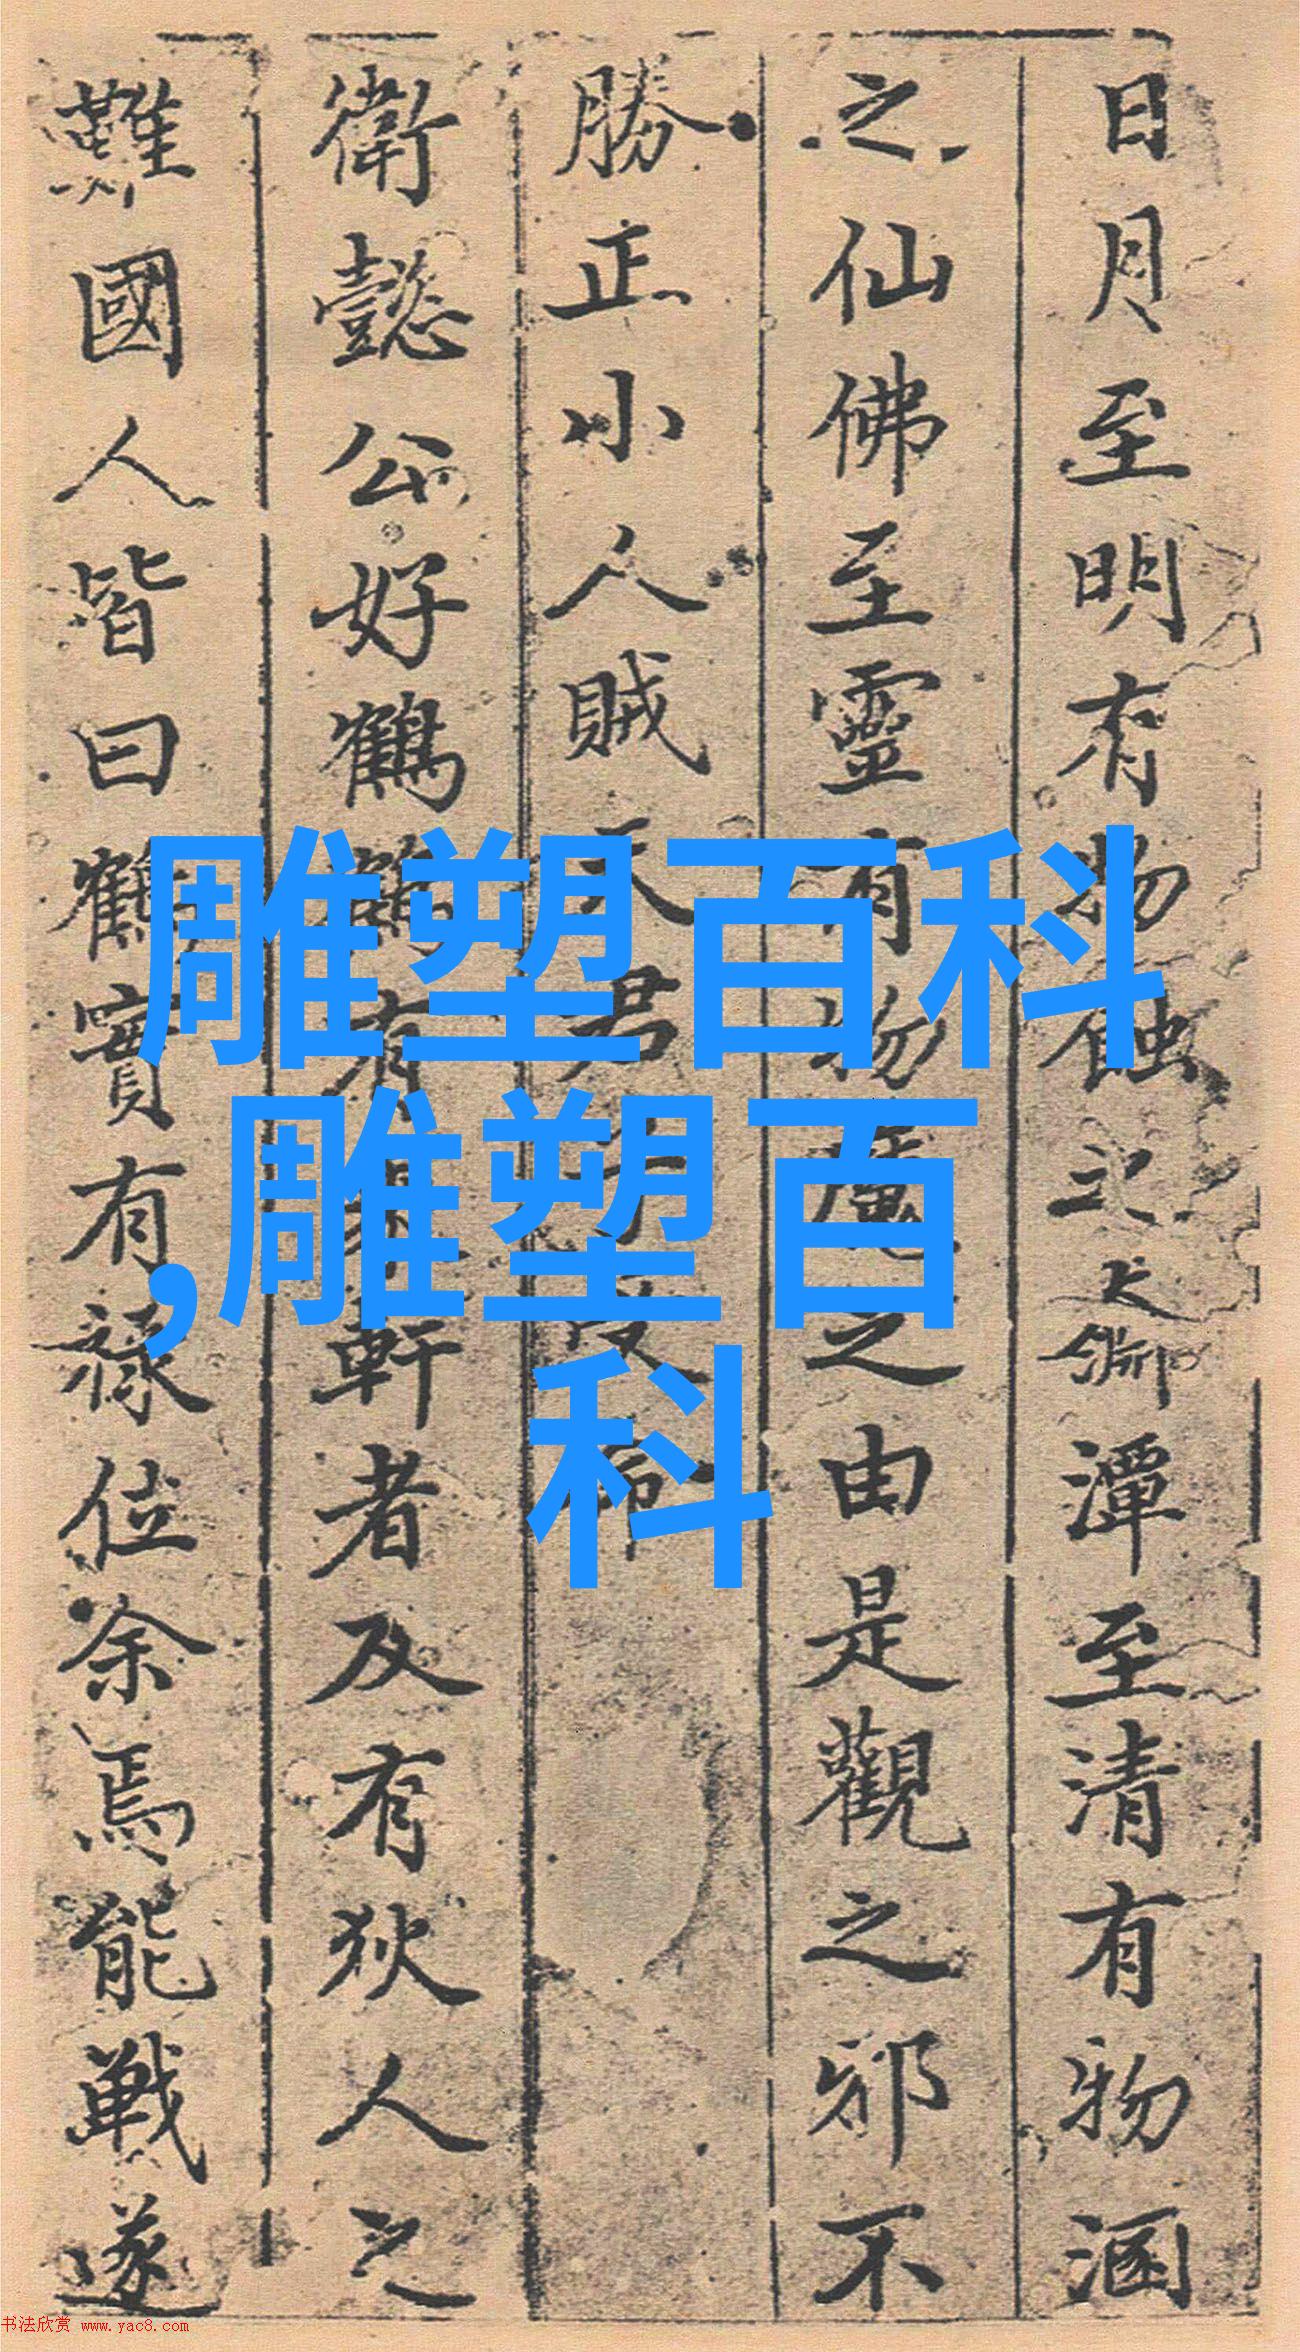 日月至明有物蝕之大淵潭至清有物涵
之仙佛至靈有物魔之由是觀之邪不
勝正小人賊
衛懿公好鶴鶴有乘軒者及有狄人之
難國人皆曰鶴實有祿位余焉能戰遂
雕塑百科
,雕塑百
科
书法欣赏 www.yac8.com